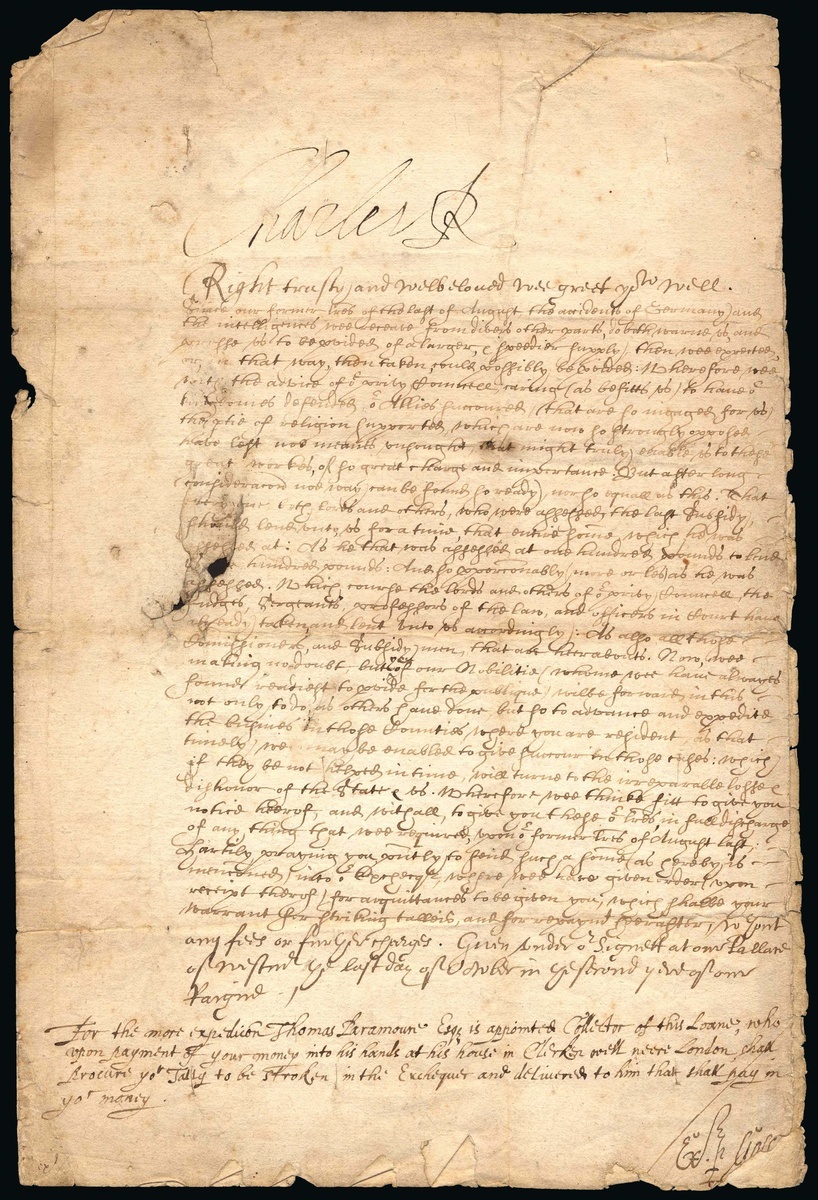 Charles R
Right trusty and welbeloved wee greet you well.
Since our former lres of the last of August the accidents of Germany, and
the intelligences wee receave from divers other parts, doth warne us and
us to be provided of a larger, & speedier supply, then wee expected,
or, in that way, then taken, could possibly be : Wherefore wee
with the advice of or privy Councell, caring (as befitts us) to have or
defended, or Allies succoured, (that are so ingaged for us)
the of religion supported, which are now so strongly opposed
have left noe meanes unsought, that might truly enable us to these
great workes, of so great charge and importance. But after long
consideracon noe way can be found so ready, nor so equall as this: That
both lords and others, who were assessed, the last Subsidy,
should lend unto us for a time, that entire some, which he was
assessed at: As he that was assessed at one hundred pounds to lend
hundred pounds: And so proporconably, more or les as he was
assessed: Which course the lords and others of or privy Councell, the
Judges, Sergeants, professors of the law, and officers in Court have
already taken, and lent unto us accordingly: As also all those
Comissioners, and Subsidy men, that are hereabouts. Now, wee
making no doubt, but yt of our Nobilitie (whome wee have alwayes
found readiest to provide for the publique) wilbe forward, in this
not only to do, as others have done, but so to advance and expedite
the busines in those Counties, where you are resident, as that
timely, wee may be enabled to give succour to those cases: which
if they be not in time, will turne to the irreparable losse &
dishonor of the State & us. Wherefore wee thinke fitt to give you
notice heerof, and, withall, to give you these or lres in full discharge
of any thing that wee required, upon or former lres of August last:
Hartily praying you to send such a some, as hereby is
mencioned, into or Excheqr, where wee have given order, upon
receipt therof, for acquittances to be given you, which shalbe your
warrant for striking talleis, and for repaymt herafter, wthout
any fees or further charges. Given under or Signett at our Pallace
of Westmr ye last day of October in ye second yere of our
Raigne
For the more expedicon Thomas Paramoure Esqr is appointed Collector of this Loane, who
upon payment of your money into his hands at his house in Clerkenwell neere London shall
procure yor Tally to be stroken in the Exchequer and delivered to him that shall pay in
yor money.